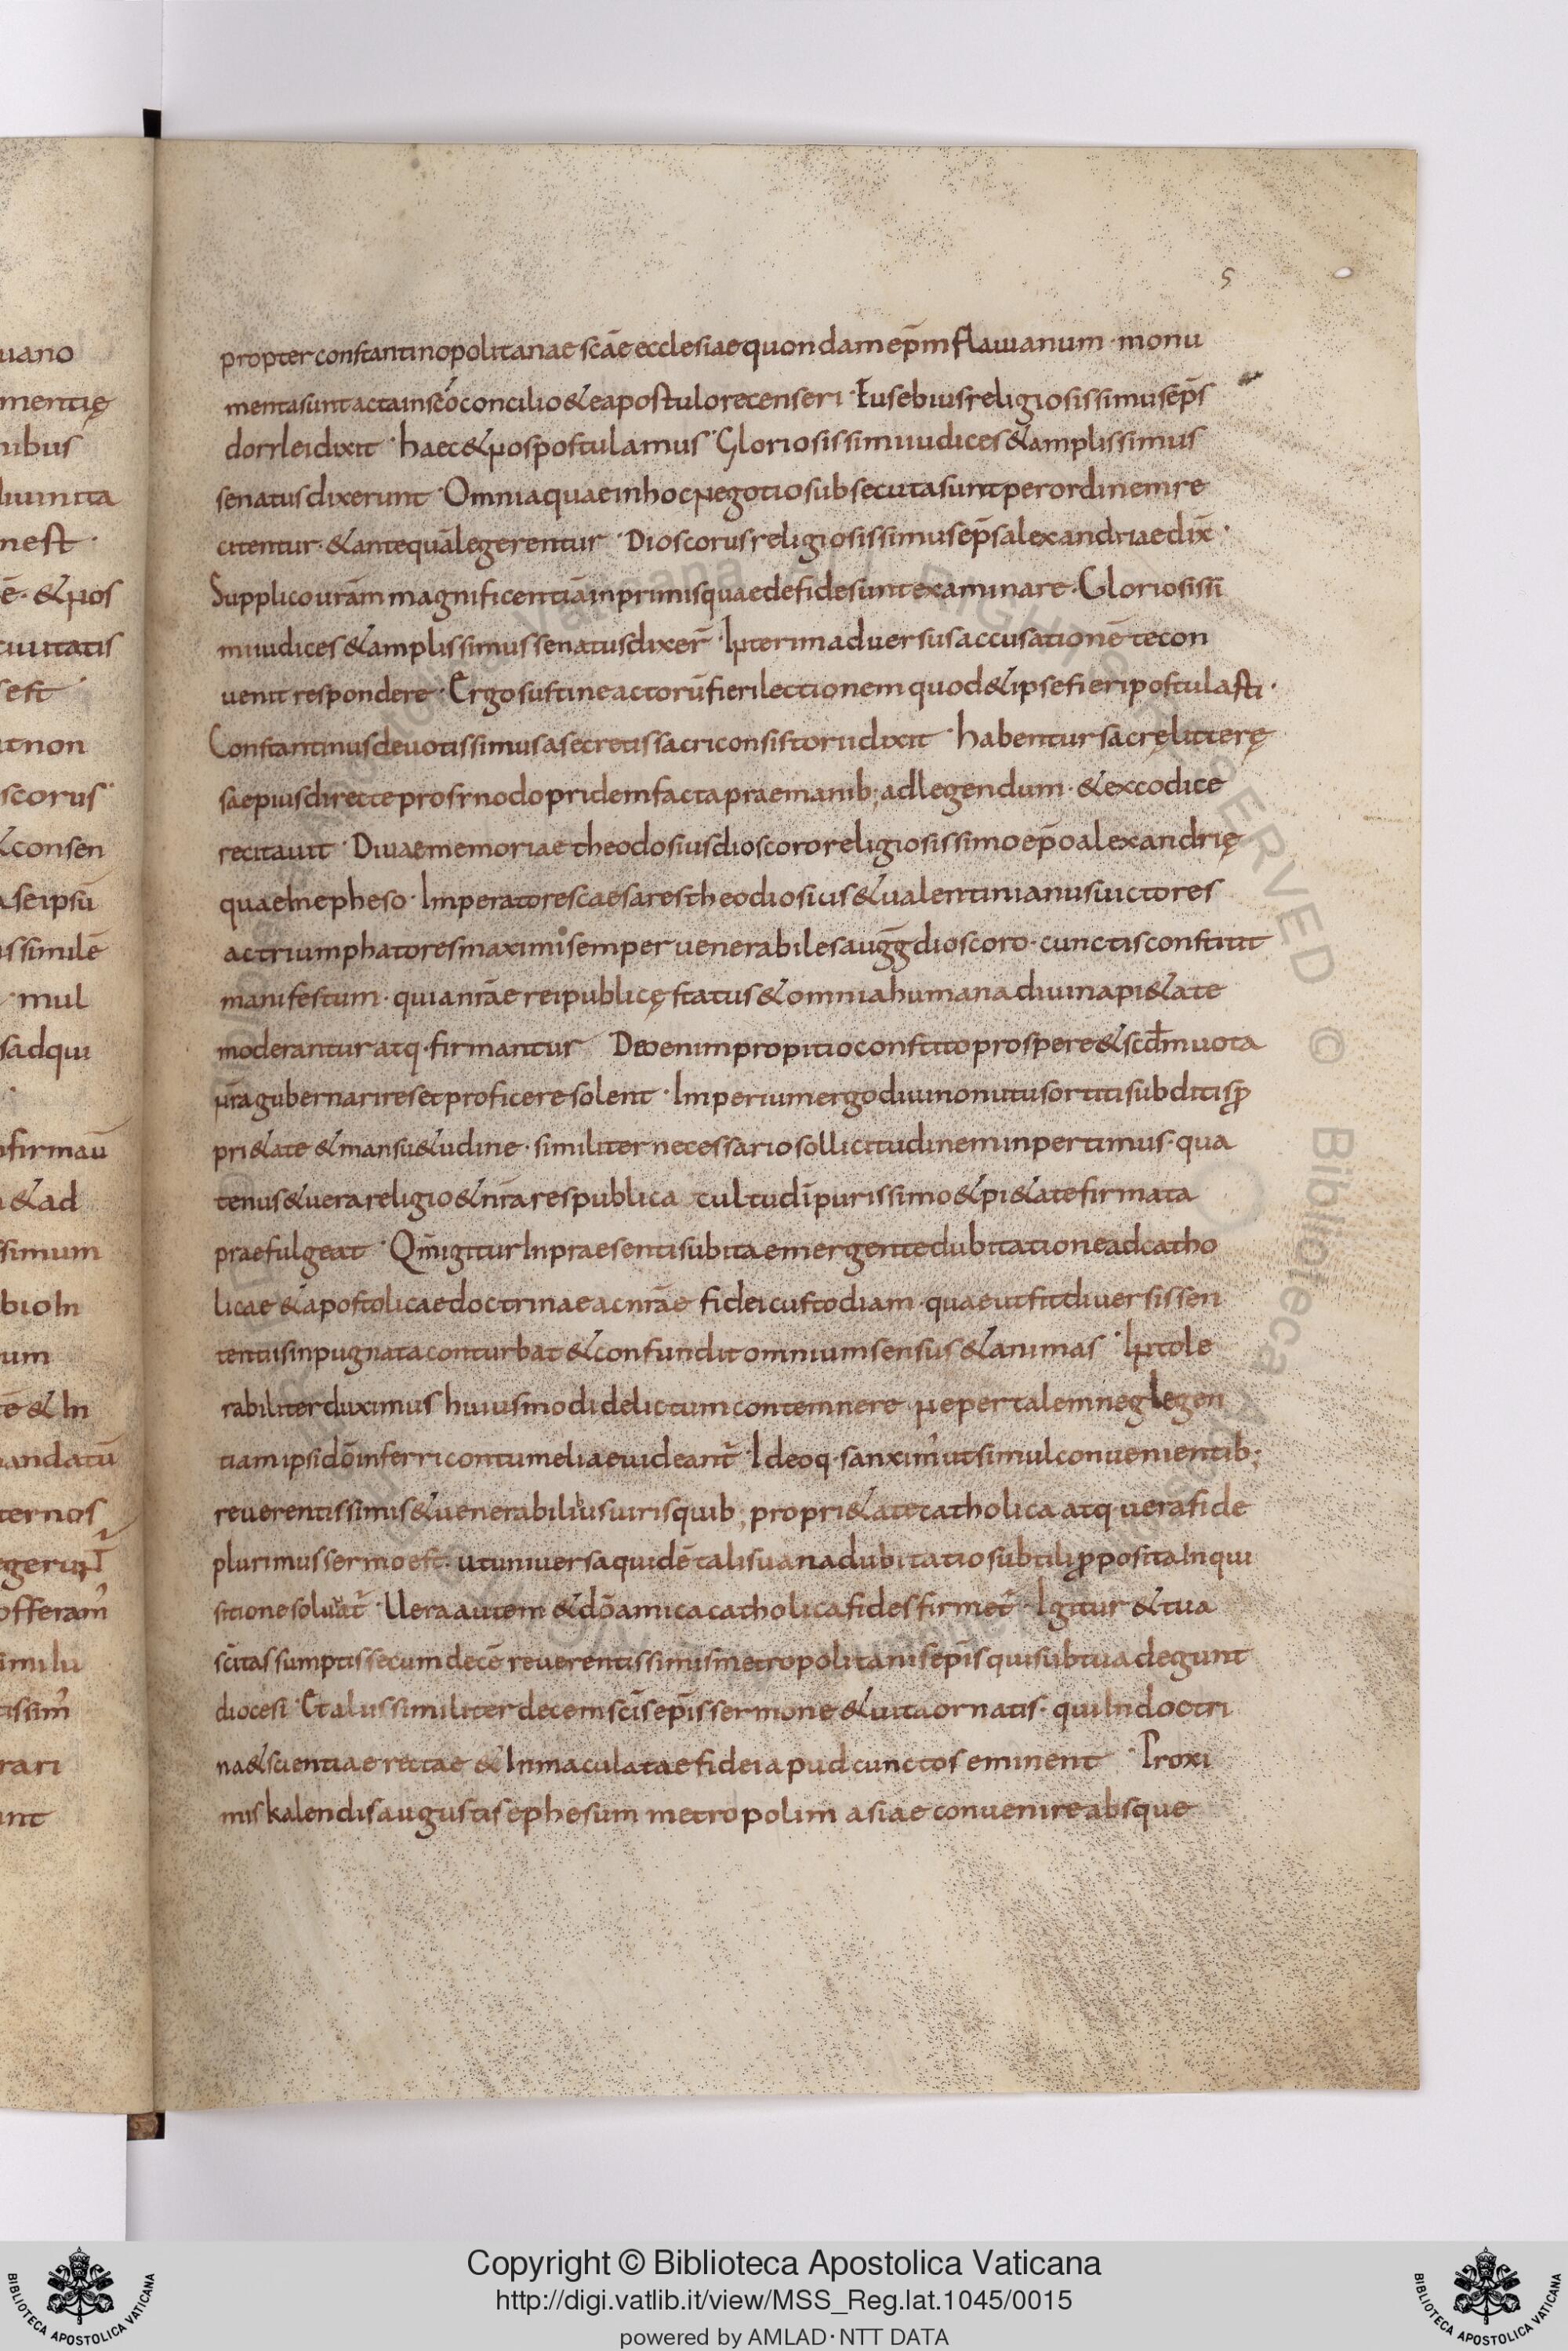 uano
mentię
nibus
diuinita
nest ·
ē · & nos
cuitatis
est
ut non
scorus
& consen
a se ipsū
issimilē
mul
sad qui
nfirmaū
& ad
simum
bio In
um
tē & In
mandatū
ternos
egerunt
offeram
similu
tissim
rari
unt
5
propter constantinopolitanae scāe ecclesiae quondam ep̄m flauianum · monu
menta sunt acta in scō concilio & ea postulo recenseri · Eusebius religiosissimus ep̄s
dorylei dixit · haec & nos postulamus · Gloriosissimi iudices & amplissimus
senatus dixerunt · Omnia quae in hoc negotio subsecuta sunt per ordinem re
citentur · & ante quā legerentur · Dioscorus religiosissimus ep̄s alexandriae dix̄ ·
Supplico urām magnificentiā in primis quae de fide sunt examinare · Gloriosissi
mi iudices & amplissimus senatus dixer̄ · Interim aduersus accusationē te con
uenit respondere · Ergo sustine actorū fieri lectionem quod & ipse fieri postulasti ·
Constantinus deuotissimus a secretis sacri consistorii dixit · habentur sacrę litterę
saepius directe pro synodo pridem facta prae manib; ad legendum · & ex codice
recitauit · Diuae memoriae theodosius dioscoro religiosissimo ep̄o alexandrię
quae In epheso · Imperatores caesares theodiosius & ualentinianus uictores
ac triumphatores maximi semper uenerabiles augg̅ dioscoro · cunctis constitit
manifestum · quia nrāe rei publicę status & omnia humana diuina pi&ate
moderantur atq · firmantur Deo enim propitio constituto prospere & scdm uota
nrā gubernari res et proficere solent · Imperium ergo diuino nutu sortiti subditis ꝓ
pri&ate & mansu&udine · similiter necessario sollicitudinem inpertimus · qua
tenus & uera religio & nrā res publica cultu dī purissimo & pi&ate firmata
praefulgeat · Qm̄ igitur In praesenti subita emergente dubitatione ad catho
licae & apostolicae doctrinae ac nrāe fidei custodiam · quae ut fit diuersis sen
tentiis inpugnata conturbat & confundit omnium sensus & animas · Intole
rabiliter duximus huiusmodi delictum contemnere ne per talem neglegen
tiam ipsi dō inferri contumeliae uideant̄ · Ideoq · sanxim' ut simul conuenientib;
reuerentissimis & uenerabilius uiris quib; pro pri&ate catholica atq · uera fide
plurimus sermo est · ut uniuersa quidē talis uana dubitatio subtili ꝓposita Inqui
sitione soluat̄ · Uera autem & dō amica catholica fides firmet̄ · Igitur & tua
scītas sumptis secum decē reuerentissimis metropolitanis ep̄is qui sub tua degunt
diocesi · Et aliis similiter decem scīs ep̄is sermone & uita ornatis · qui In doctri
na & scientiae rectae & Inmaculatae fidei apud cunctos eminent · Proxi
mis kalendis augustis ephesum metropolim asiae conuenire absque
Copyright © Biblioteca Apostolica Vaticana
http://digi.vatlib.it/view/MSS_Reg.lat.1045/0015
powered by AMLAD · NTT DATA
BIBLIOTECA APOSTOLICA VATICANA
BIBLIOTECA APOSTOLICA VATICANA